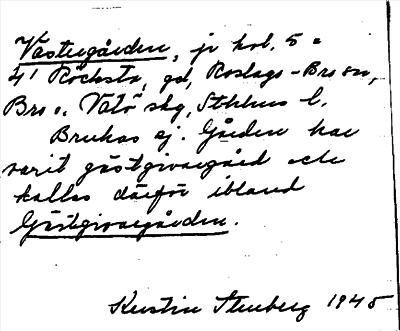 Västergården, jr kol. 5 =
4¹ Röcksta, gd, Roslags-Bro sn,
Bro o. Vätö skg, Sthlms l.
Brukas ej. Gården har
varit gästgivaregård och
kallas därför ibland
Gästgivaregården.
Kerstin Stenberg 1945